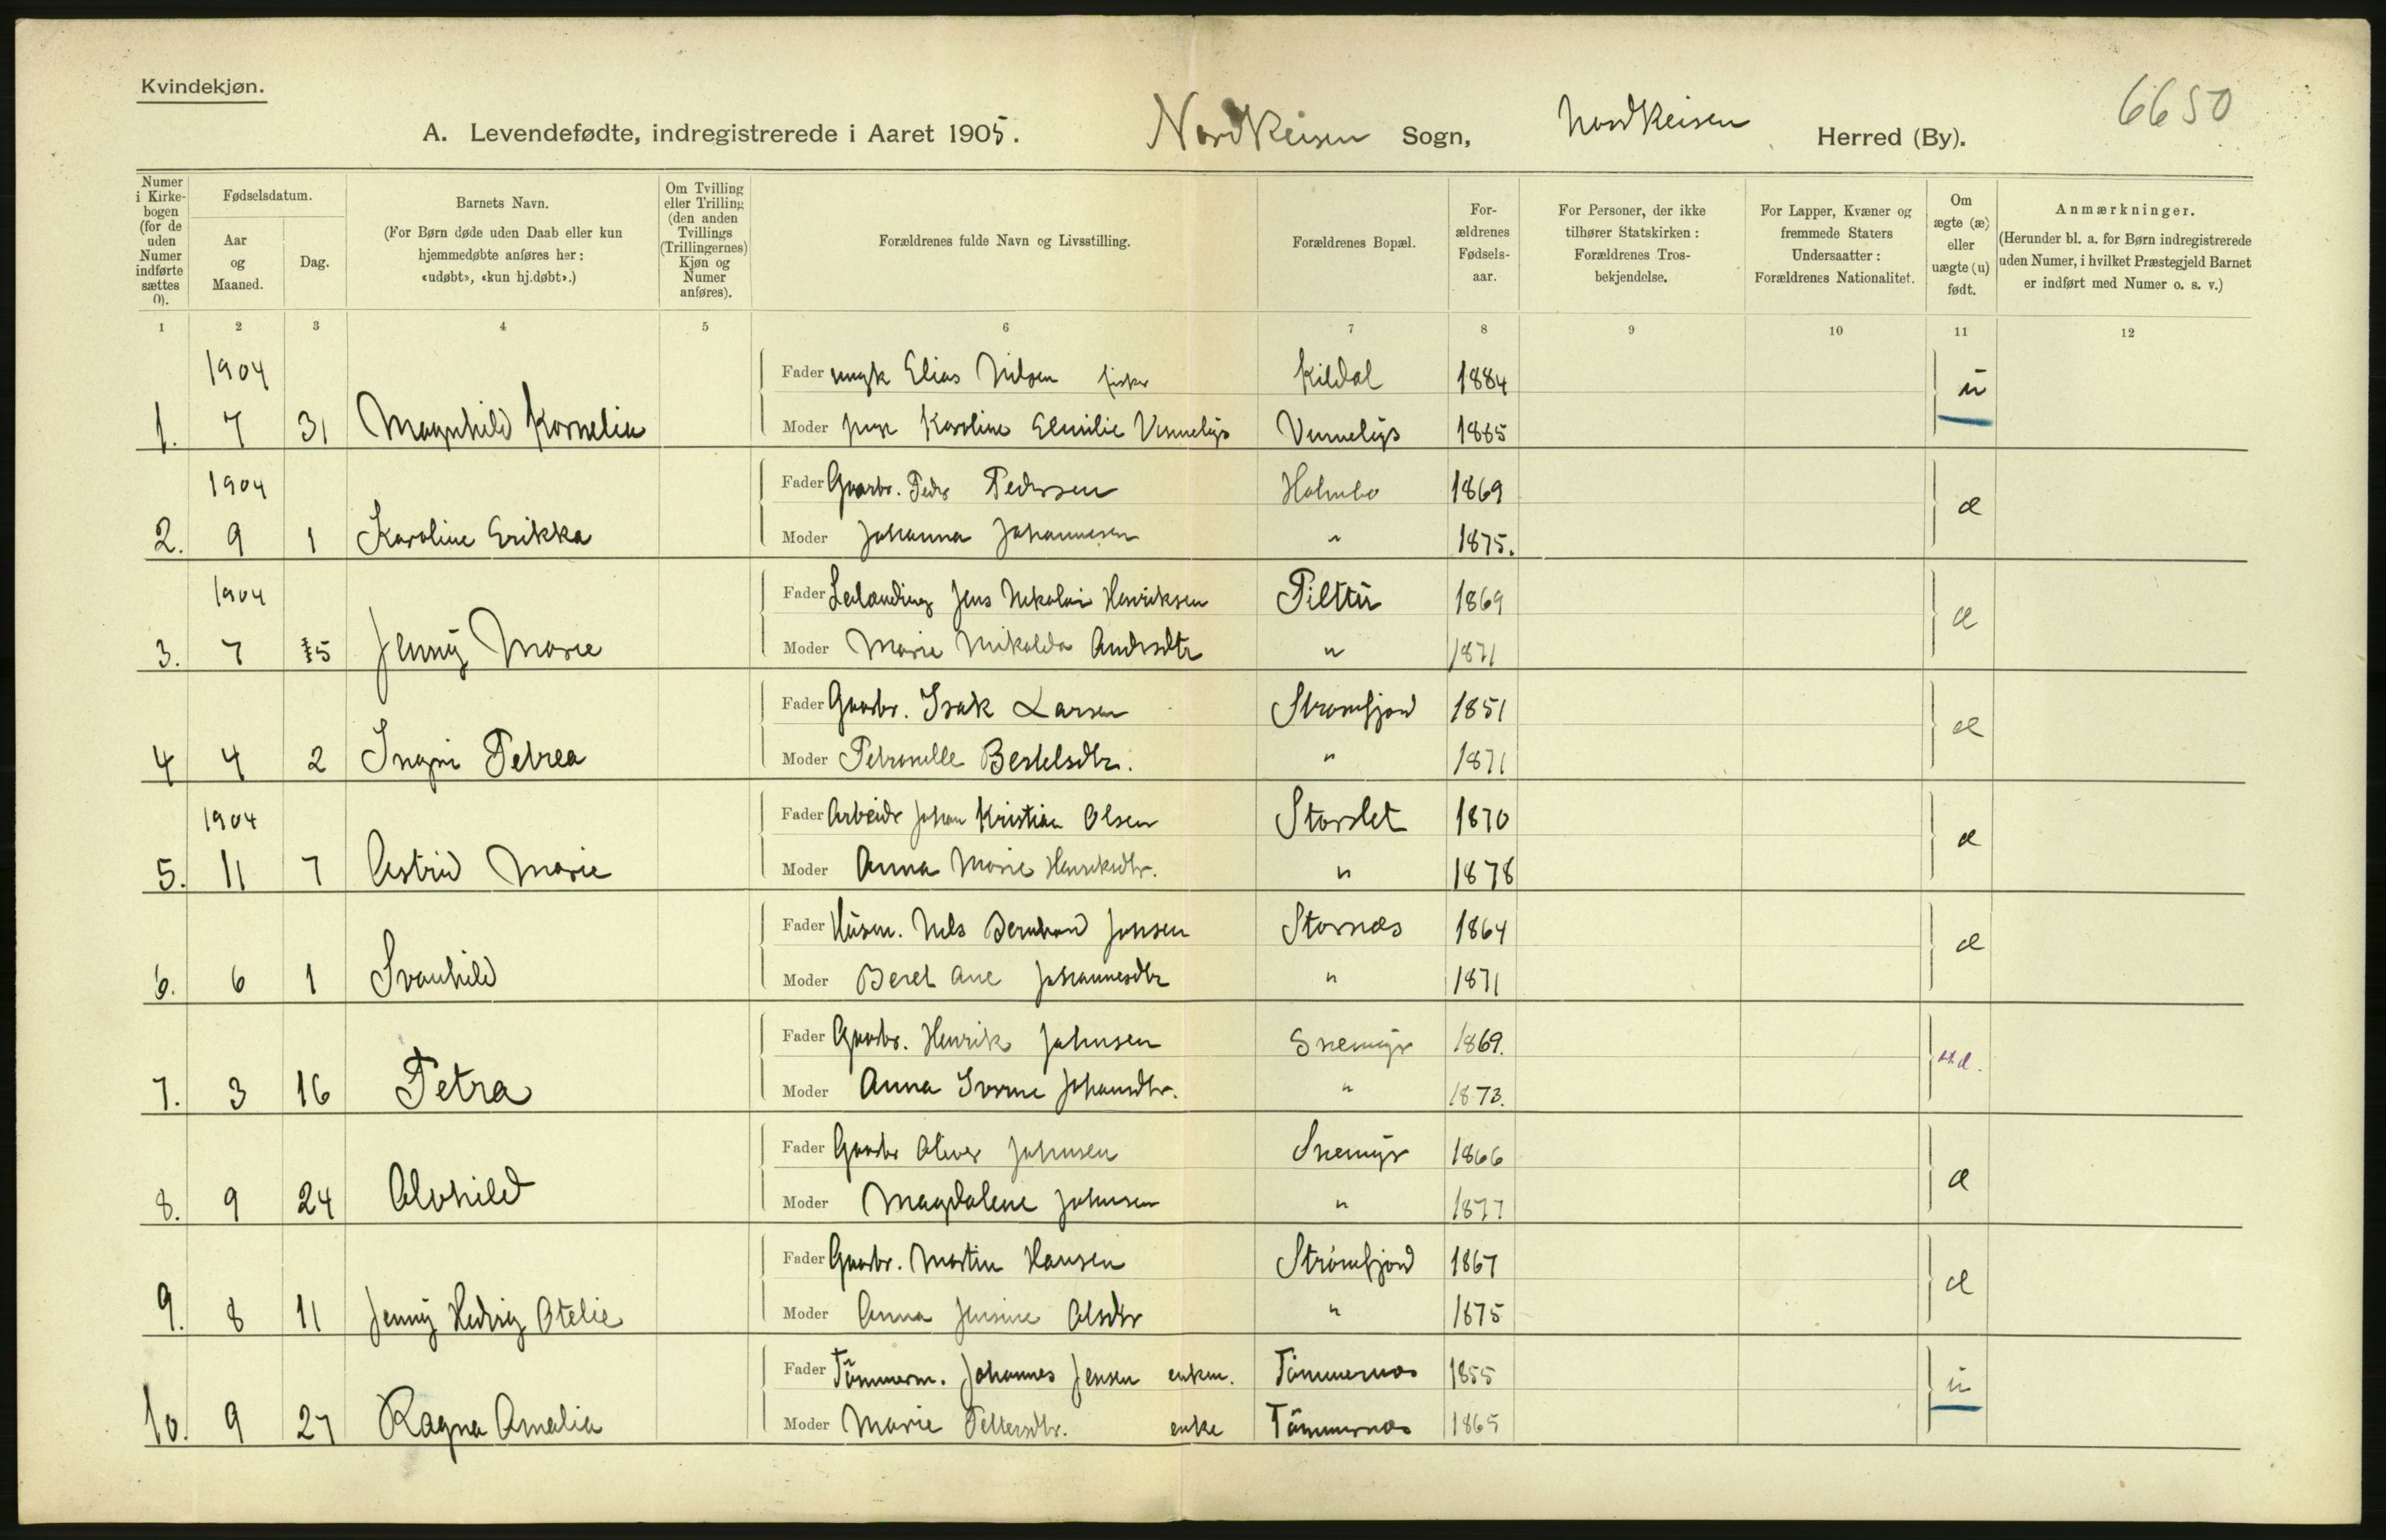 Kvindekjøn.
6650
A. Levendefødte, indregistrerede i Aaret 1905. Nordreisen Sogn, Nordreisen Herred (By).
Numer i Kirkebogen (for de uden Numer indførte sættes 0).
Fødselsdatum.
Aar og Maaned.
Dag.
Barnets Navn.
(For Børn døde uden Daab eller kun hjemmedøbte anføres her: «udøbt», «kun hj.døbt».)
Om Tvilling eller Trilling (den anden Tvillings (Trillingernes) Kjøn og Numer anføres).
Forældrenes fulde Navn og Livsstilling.
Forældrenes Bopæl.
Forældrenes Fødselsaar.
For Personer, der ikke tilhører Statskirken: Forældrenes Trosbekjendelse.
For Lapper, Kvæner og fremmede Staters Undersaatter: Forældrenes Nationalitet.
Om ægte (æ) eller uægte (u) født.
Anmærkninger.
(Herunder bl. a. for Børn indregistrerede uden Numer, i hvilket Præstegjeld Barnet er indført med Numer o. s. v.)
1 2 3 4 5 6 7 8 9 10 11 12
1904 Fader ungk Elias Nilsen fisker Kildal 1884 u
1. 7 31 Magnhild Kornelia Moder pige Karoline Emilie 1885
1904 Fader Gaarbr. Peder Pedersen Holmbo 1869 æ
2. 9 1 Karoline Erikka Moder Johanna Johannesen " 1875.
1904 Fader Leilænding Jens Nikolai Henriksen Pilttu 1869 æ
3. 7 15 Jenny Marie Moder Marie Nikolda Andrsdtr " 1871
Fader Gaarbr. Isak Larsen Strømfjord 1851 æ
4 4 2 Ingri Petrea Moder Petronelle Bertelsdtr. " 1871
1904 Fader Arbeidr Johan Kristian Olsen Storslet 1870 æ
5. 11 7 Astrid Marie Moder Anna Marie Henriksdtr. " 1878
Fader Husm. Nils Bernhard Jonsen Stornæs 1864 æ
6. 6 1 Svanhild Moder Beret Ane Johannesdtr " 1871
Fader Gaarbr. Henrik Johnsen Snemyr 1869.
7. 3 16 Petra Moder Anna Johansdtr. " 1873.
Fader Gaarbr Oliver Johnsen Snemyr 1866 æ
8. 9 24 Alvhild Moder Magdalene Johnsen " 1877
Fader Gaarbr. Martin Hansen Strømfjord 1867 æ
9. 8 11 Jenny Hedvig Otelie Moder Anna Jensine Olsdtr " 1875
Fader Tømmerm. Johannes Jensen enkem. Tømmernæs 1855 u
10. 9 27 Ragna Amalia Moder Marie Pettersdtr. enke Tømmernæs 1865